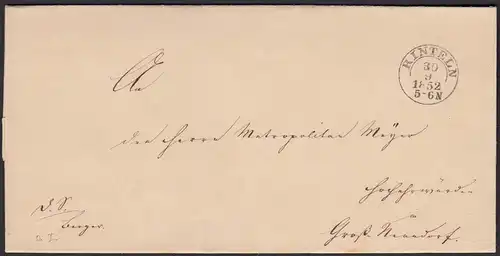 RINTELN
30
9
1852
5-6N
An
den Herrn Metropolitan Meyer
Hochehrwürden
D. S.
Berger.
Groß Nenndorf.